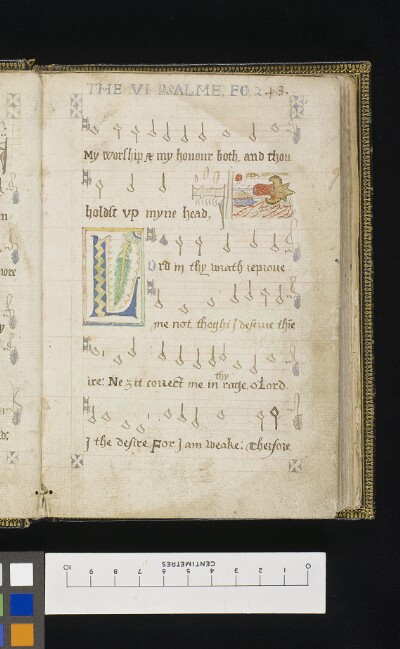 THE VI PSALME, FO 2
My worship & my honour both, and thou
holdst vp myne head,
Lord in thy wrath reproue
me not, thoght I deserue thie
ire: Ne zit correct me in thy rage, o Lord.
I the desire, For I am weake: Therfore
ore
m
y
er
CENTIMETRES
10 9 8 7 6 5 4 3 2 1 0